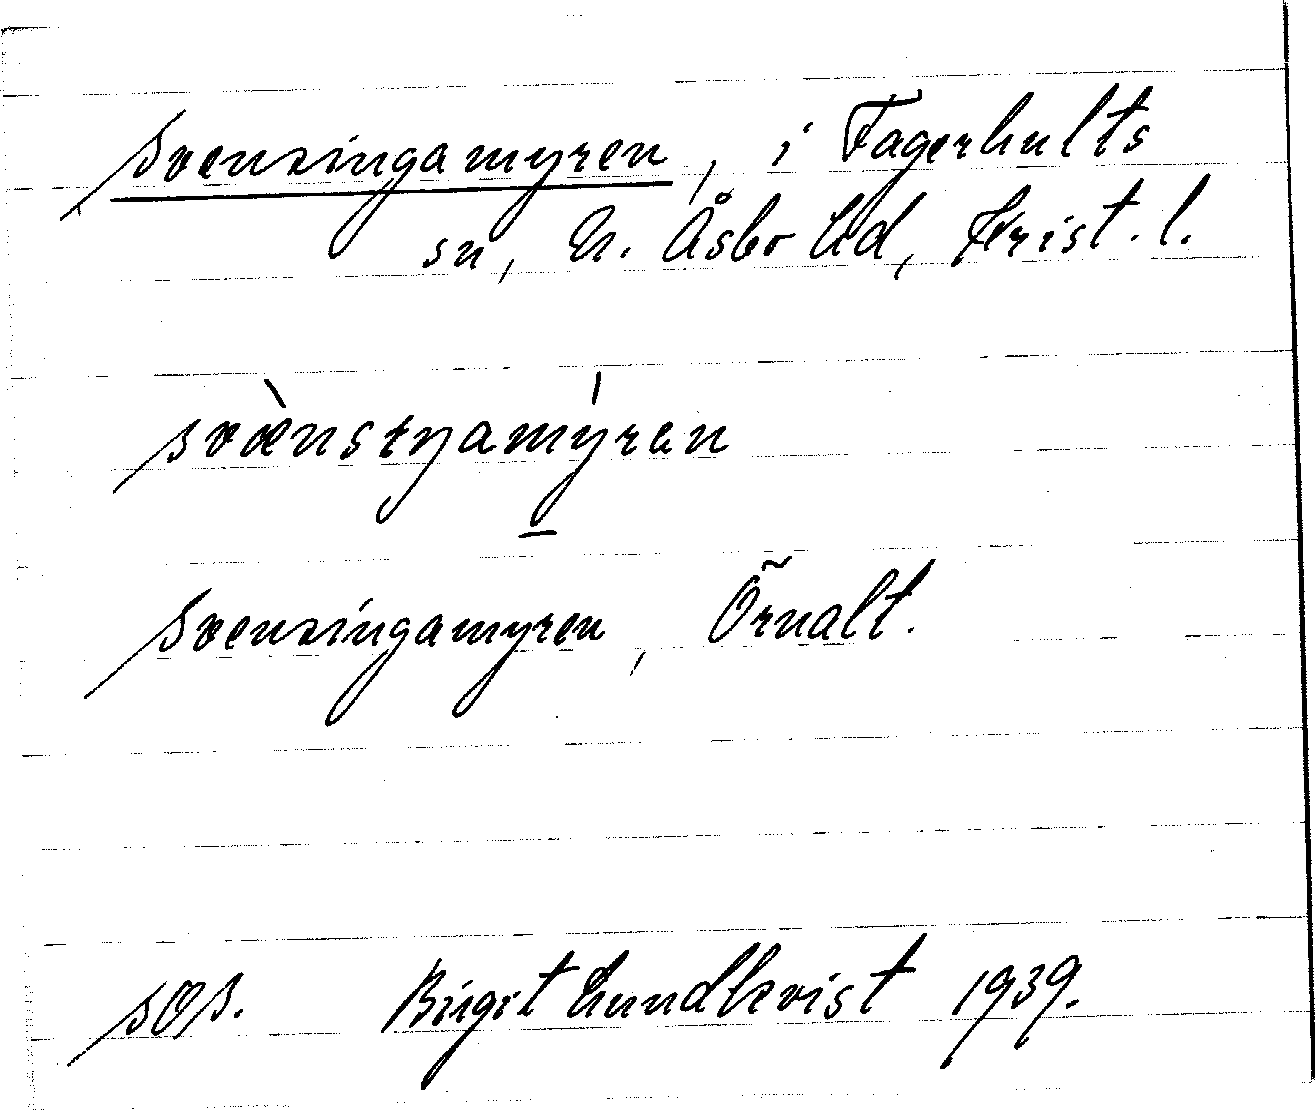 Svensingamyren, i Fagerhults
sn, N. Åsbo hd, Krist. l.
svænsıŋamy̱ren
Svensingamyren, Örnalt.
Birgit Lundkvist 1939.